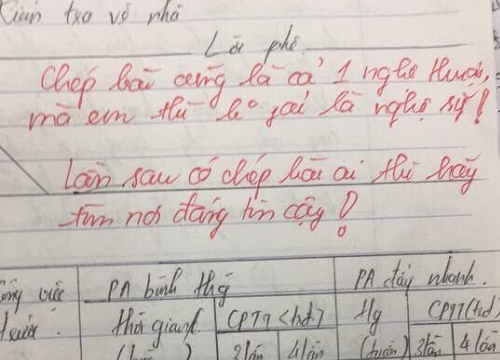 Kiểm tra về nhà
Lời phê
Chép bài cũng là cả 1 nghệ thuật,
mà em thì k° fai là nghệ sỹ!
Lần sau có chép bài ai thì hãy
tìm nơi đáng tin cậy!
Công việc PA bình thg PA đẩy nhanh.
trước. thời gian CPTT (trđ) tg CPTT (trđ)
(tuần) 3 lần 4 lần (tuần) 3 lần 4 lần